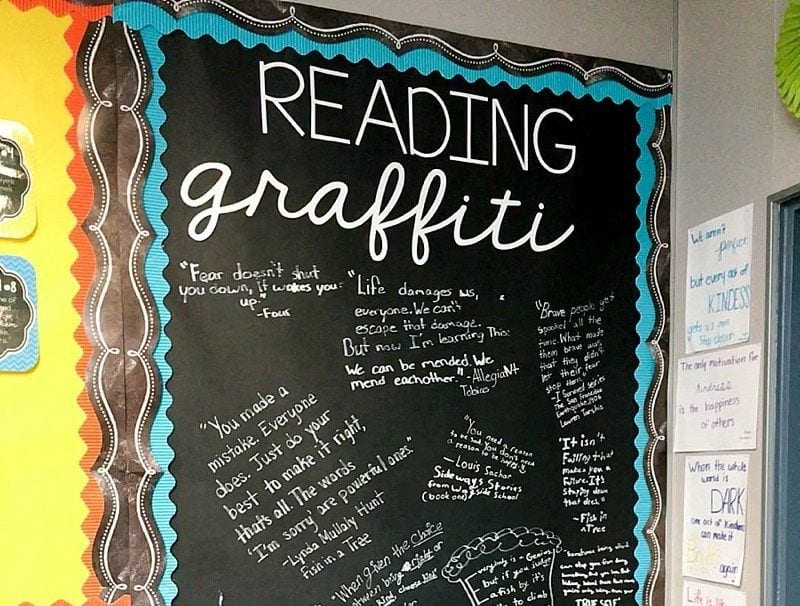 READING
graffiti
"Fear doesn't shut
you down, it wakes you
up."
-Four
"Life damages us,
everyone. We can't
escape that damage.
But now I'm learning This:
We can be mended. We
mend eachother." - AllegiaNt
Tobias
"Brave people get
spooked all the
time. What made
them brave was
that they didn't
let their fear
stop them"
-I Survived series
The San Francisco
Earthquake, 1906
Lauren Tarshis
"You made a
mistake. Everyone
does. Just do your
best to make it right,
that's all. The words
'I'm sorry' are powerful ones."
-Lynda Mullaly Hunt
Fish in a Tree
"You need a reason
to be sad. You don't need
a reason to be happy."
-Louis Sachar
Sideways Stories
from Wayside School
(book one)
"It isn't
Failing that
makes you a
Failure. It's
Staying down
that does."
-Fish in
a Tree
"When given the choice
between being right or
kind choose kind
Everybody is a Genius
but if you judge
a fish by it's
to climb
"Sometimes being
TRUE SELF
We aren't
perfect
but every act of
KINDESS
gets us one
step closer
The only motivation for
kindness
is the happiness
of others
When the whole
world is
DARK
one act of kindness
can make it
Bright
again
Life is